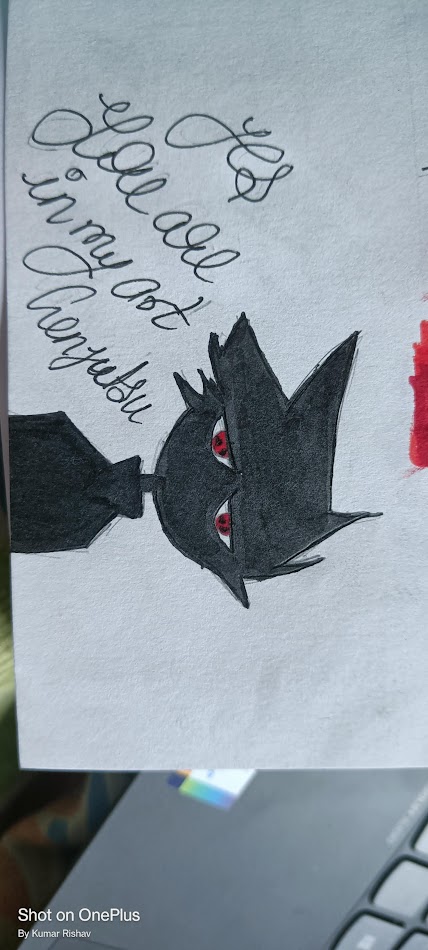 You are
in my art
Genjutsu
Shot on OnePlus
By Kumar Rishav